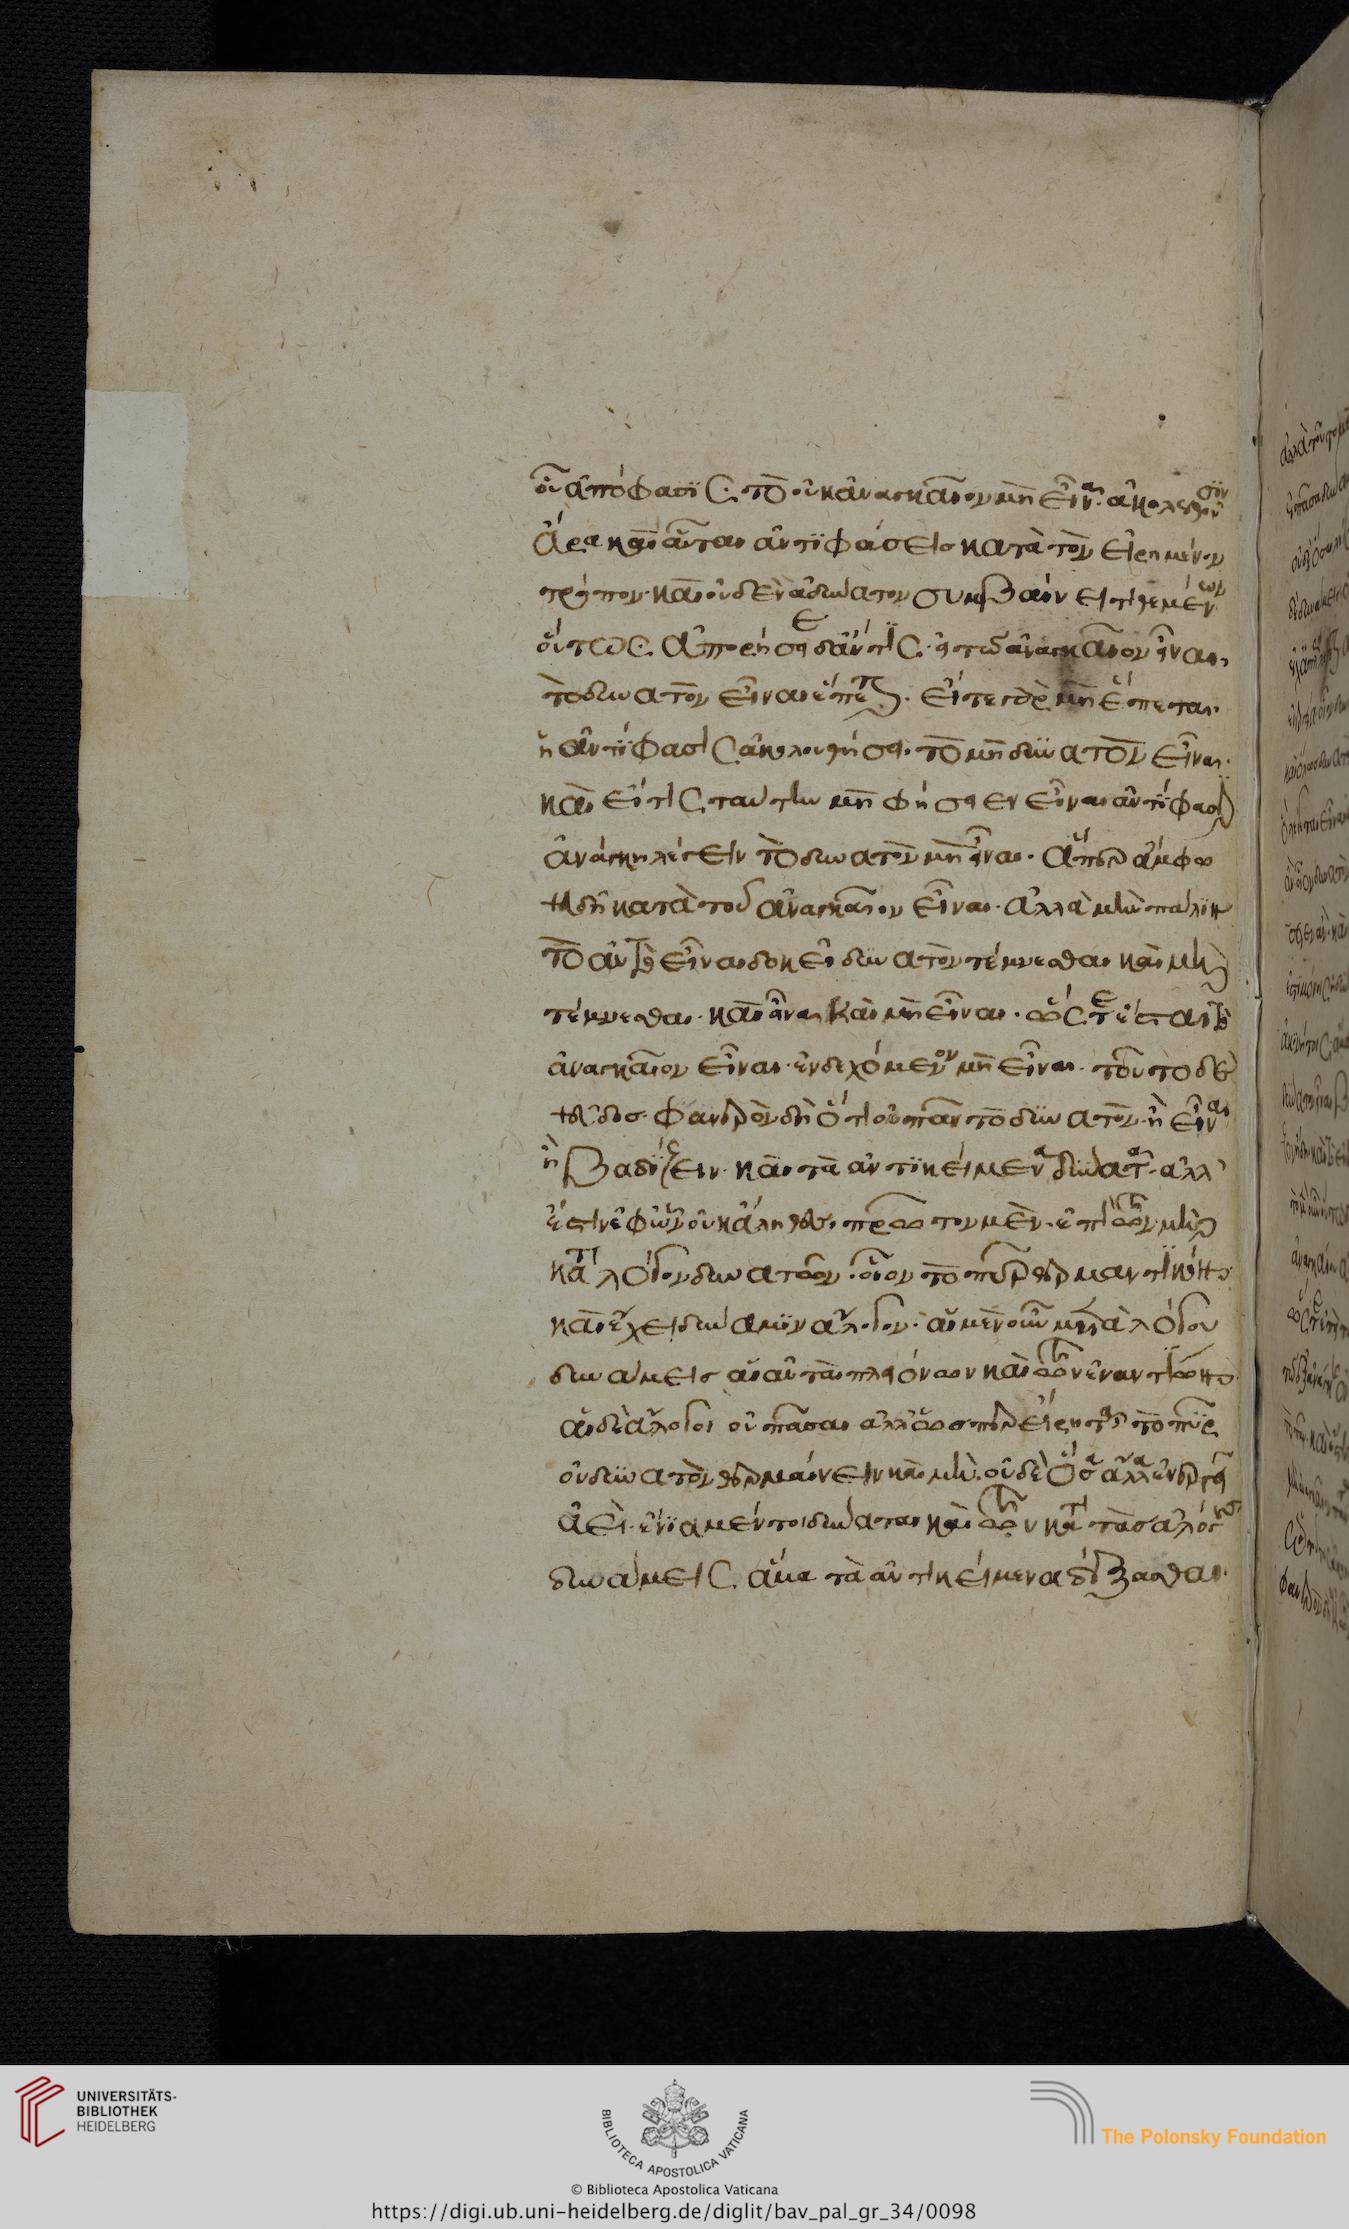 οὗ ἀπόφασις. τὸ οὐκ ἀναγκαῖον μὴ εἶναι. ἀκολουθοῦσιν
ἄρα καὶ αὗται ἀντιφάσεις κατὰ τὸν εἰρημένον
τρόπον. καὶ οὐδὲν ἀδύνατον συμβαίνει τιθεμένων
οὕτως. ἀπορήσειε δ' ἄν τις. εἰ τῶ ἀναγκαῖον εἶναι,
τὸ δυνατὸν εἶναι ἕπεται. εἴτε γὰρ μὴ ἕπεται.
ἡ ἀντίφασις ἀκολουθήσει. τὸ μὴ δυνατὸν εἶναι.
καὶ εἴ τις ταύτην μὴ φήσειεν εἶναι ἀντίφασιν
ἀνάγκη λέγειν τὸ δυνατὸν μὴ εἶναι. ἅπερ ἄμφω
ψευδῆ κατὰ τοῦ ἀναγκαῖον εἶναι. ἀλλὰ μὴν πάλιν
τὸ αὐτὸ εἶναι δοκεῖ δυνατὸν τέμνεσθαι καὶ μὴ
τέμνεσθαι. καὶ εἶναι καὶ μὴ εἶναι. ὥστε ἔσται τὸ
ἀναγκαῖον εἶναι. ἐνδεχόμενον μὴ εἶναι. τοῦτο δὲ
ψεῦδος. φανερὸν δὴ ὅτι οὐ πᾶν τὸ δυνατὸν. ἢ εἶναι
ἢ βαδίζειν. καὶ τὰ ἀντικείμενα δύναται. ἀλλ'
ἔστιν ἐφ' ὧν οὐκ ἀληθές. πρῶτον μὲν. ἐπὶ τῶν μὴ
κατὰ λόγον δυνατῶν. οἷον τὸ πῦρ θερμαντικόν.
καὶ ἔχει δύναμιν ἄλογον. αἱ μὲν οὖν μετὰ λόγου
δυνάμεις αἱ αὐταὶ πλειόνων καὶ τῶν ἐναντίων.
αἱ δὲ ἄλογοι οὐ πᾶσαι ἀλλ' ὥσπερ εἴρηται τὸ πῦρ
οὐ δυνατὸν θερμαίνειν καὶ μὴ. οὐδὲ ὅσα ἄλλα ἐνεργεῖ
ἀεί. ἔνια μέντοι δύναται καὶ τῶν κατὰ τὰς ἀλόγους
δυνάμεις. ἅμα τὰ ἀντικείμενα δέξασθαι.
UNIVERSITÄTS-
BIBLIOTHEK
HEIDELBERG
BIBLIOTECA APOSTOLICA VATICANA
The Polonsky Foundation
© Biblioteca Apostolica Vaticana
https://digi.ub.uni-heidelberg.de/diglit/bav_pal_gr_34/0098